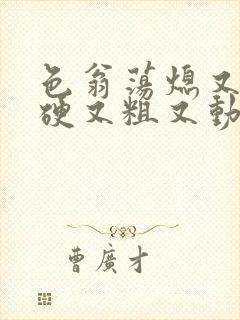 色翁蕩熄又
硬又粗又動
曹廣才